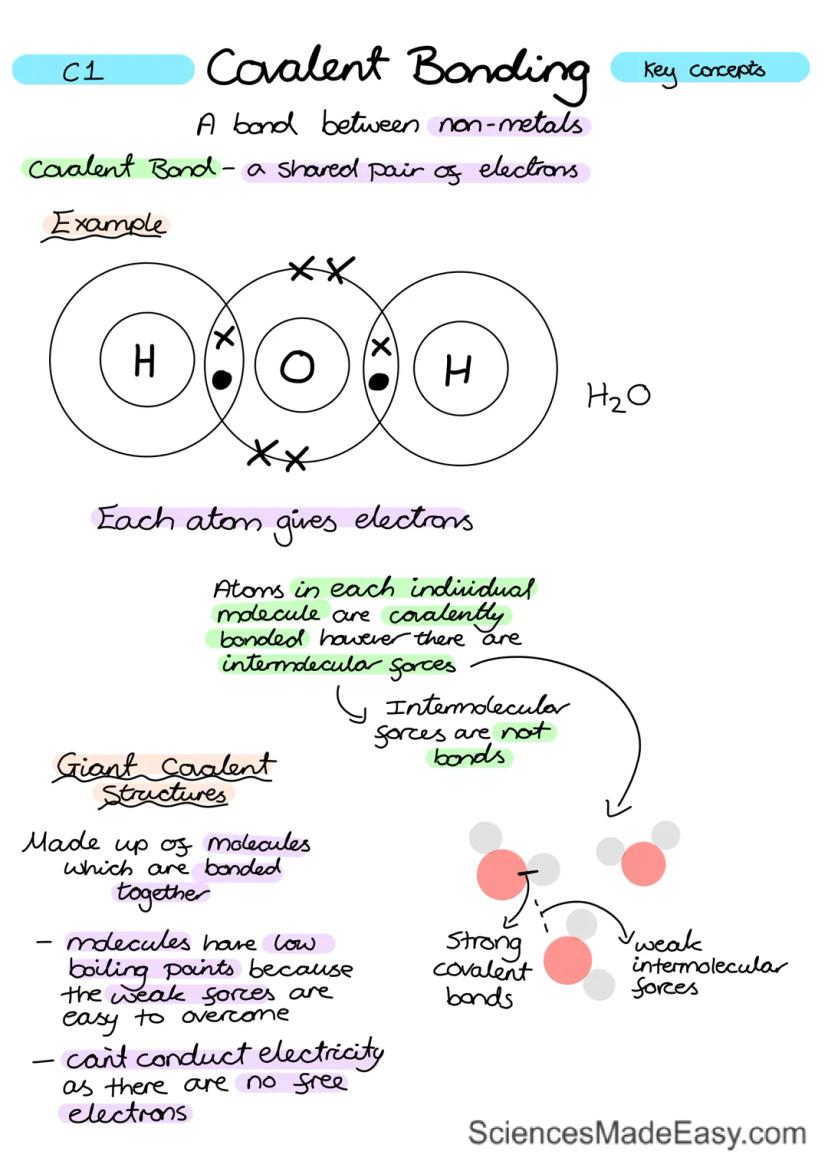 C1
Covalent Bonding
Key concepts
A bond between non-metals
Covalent Bond - a shared pair of electrons
Example
x x
H x O x H
H₂O
x x
Each atom gives electrons
Atoms in each individual
molecule are covalently
bonded however there are
intermolecular forces
Intermolecular
forces are not
bonds
Giant Covalent
Structures
Made up of molecules
which are bonded
together
- molecules have low
boiling points because
the weak forces are
easy to overcome
- can't conduct electricity
as there are no free
electrons
Strong
covalent
bonds
weak
intermolecular
forces
SciencesMadeEasy.com